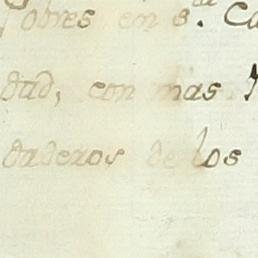 Pobres en s.ta Ca
dad, con mas
daderos de los